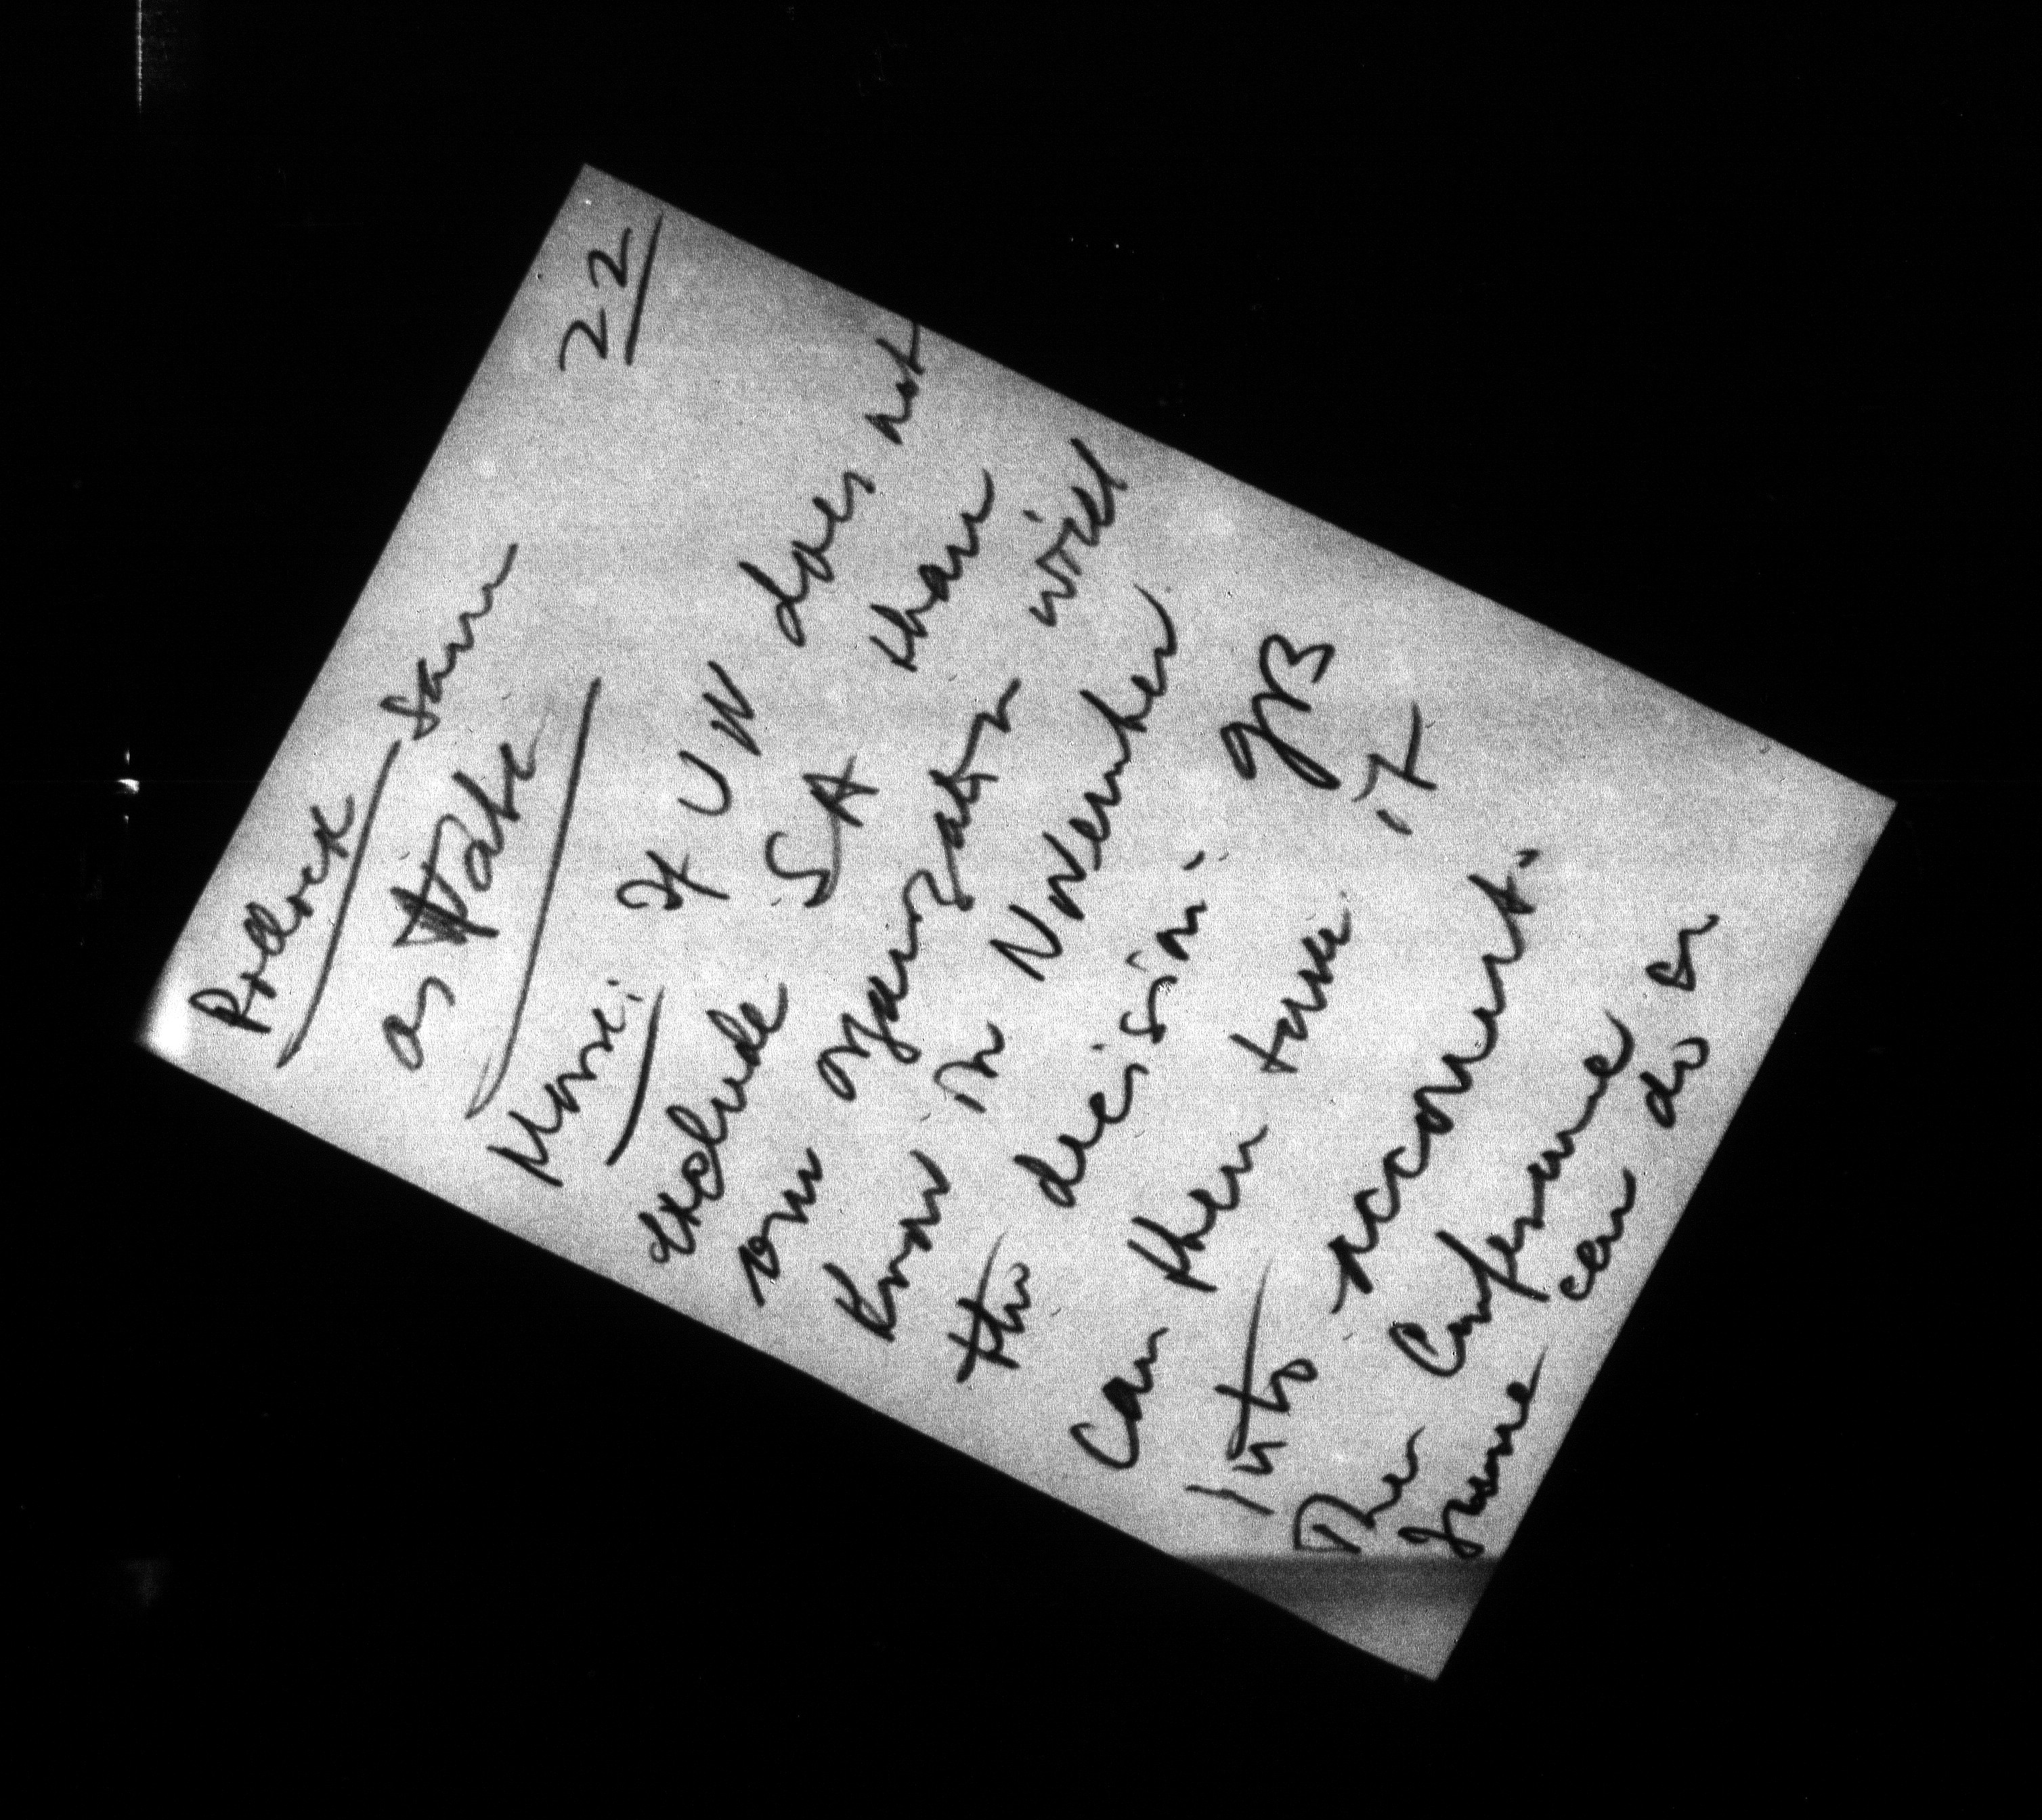 22
Pollock same
as State
Morse: If UN does not
exclude SA then
our organization will
know in November
the decision. GB
can then take it
into account.
Then Conference in
June can do so